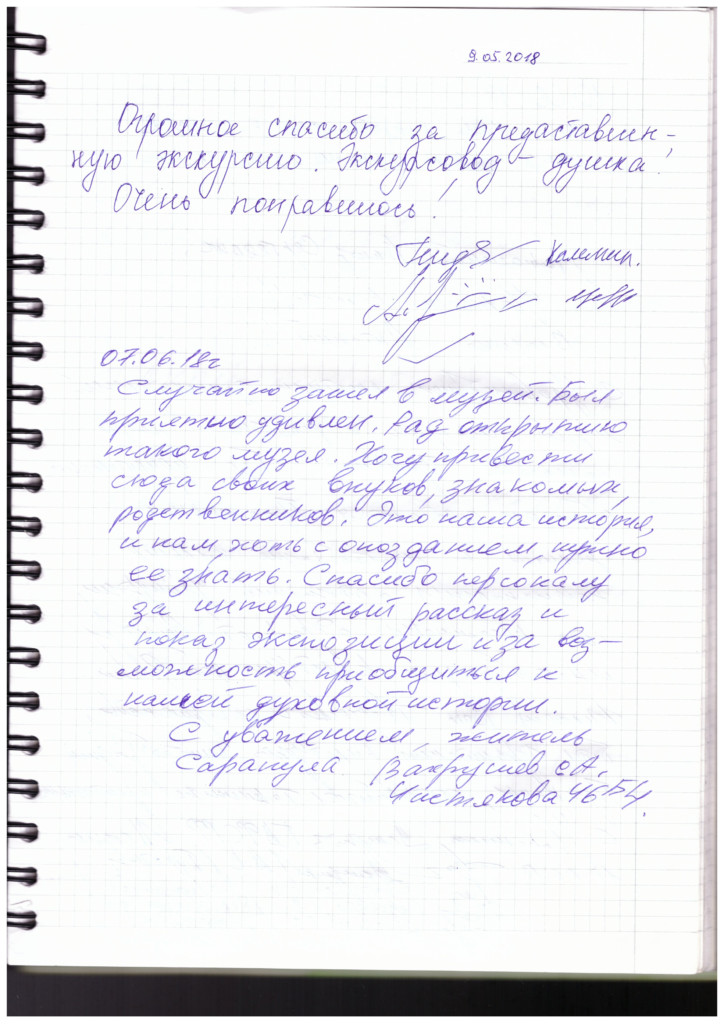 9.05.2018
Огромное спасибо за предаставлен-
ную экскурсию. Экскурсовод - душка!
Очень понравилось!
07.06.18г
Случайно зашел в музей. Был
приятно удивлен. Рад открытию
такого музея. Хочу привести
сюда своих внуков, знакомых,
родственников. Это наша история,
и нам, хоть с опозданием, нужно
ее знать. Спасибо персоналу
за интересный рассказ и
показ экспозиции и за воз-
можность приобщиться к
нашей духовной истории.
С уважением, житель
Сарапула Вахрушев с А.
Чистякова 46